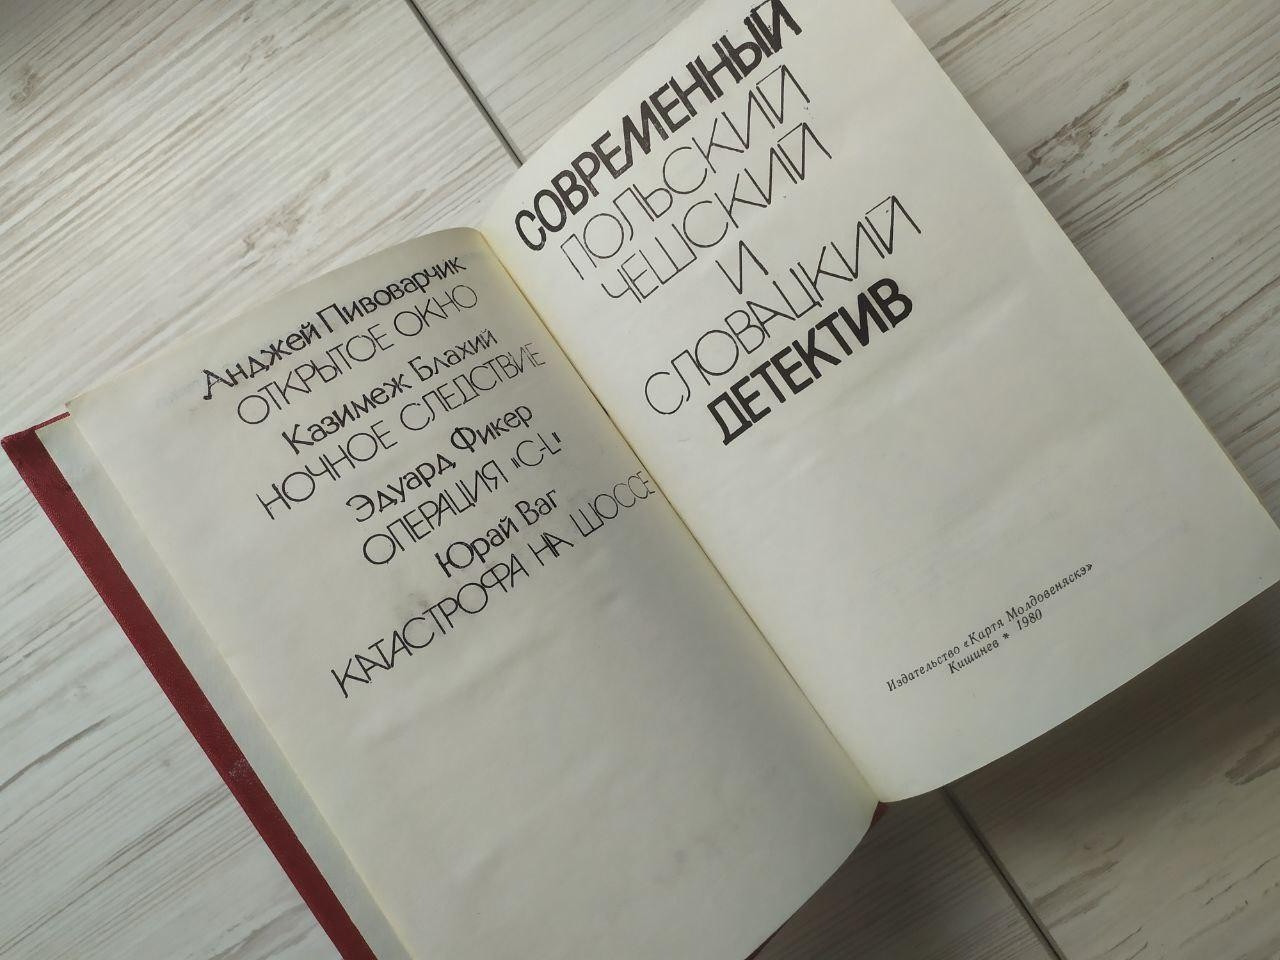 Анджей Пивоварчик
ОТКРЫТОЕ ОКНО
Казимеж Блахий
НОЧНОЕ СЛЕДСТВИЕ
Эдуард Фикер
ОПЕРАЦИЯ "C-L"
Юрай Ваг
КАТАСТРОФА НА ШОССЕ
СОВРЕМЕННЫЙ
ПОЛЬСКИЙ
ЧЕШСКИЙ
И
СЛОВАЦКИЙ
ДЕТЕКТИВ
Издательство «Картя Молдовеняскэ»
Кишинев * 1980